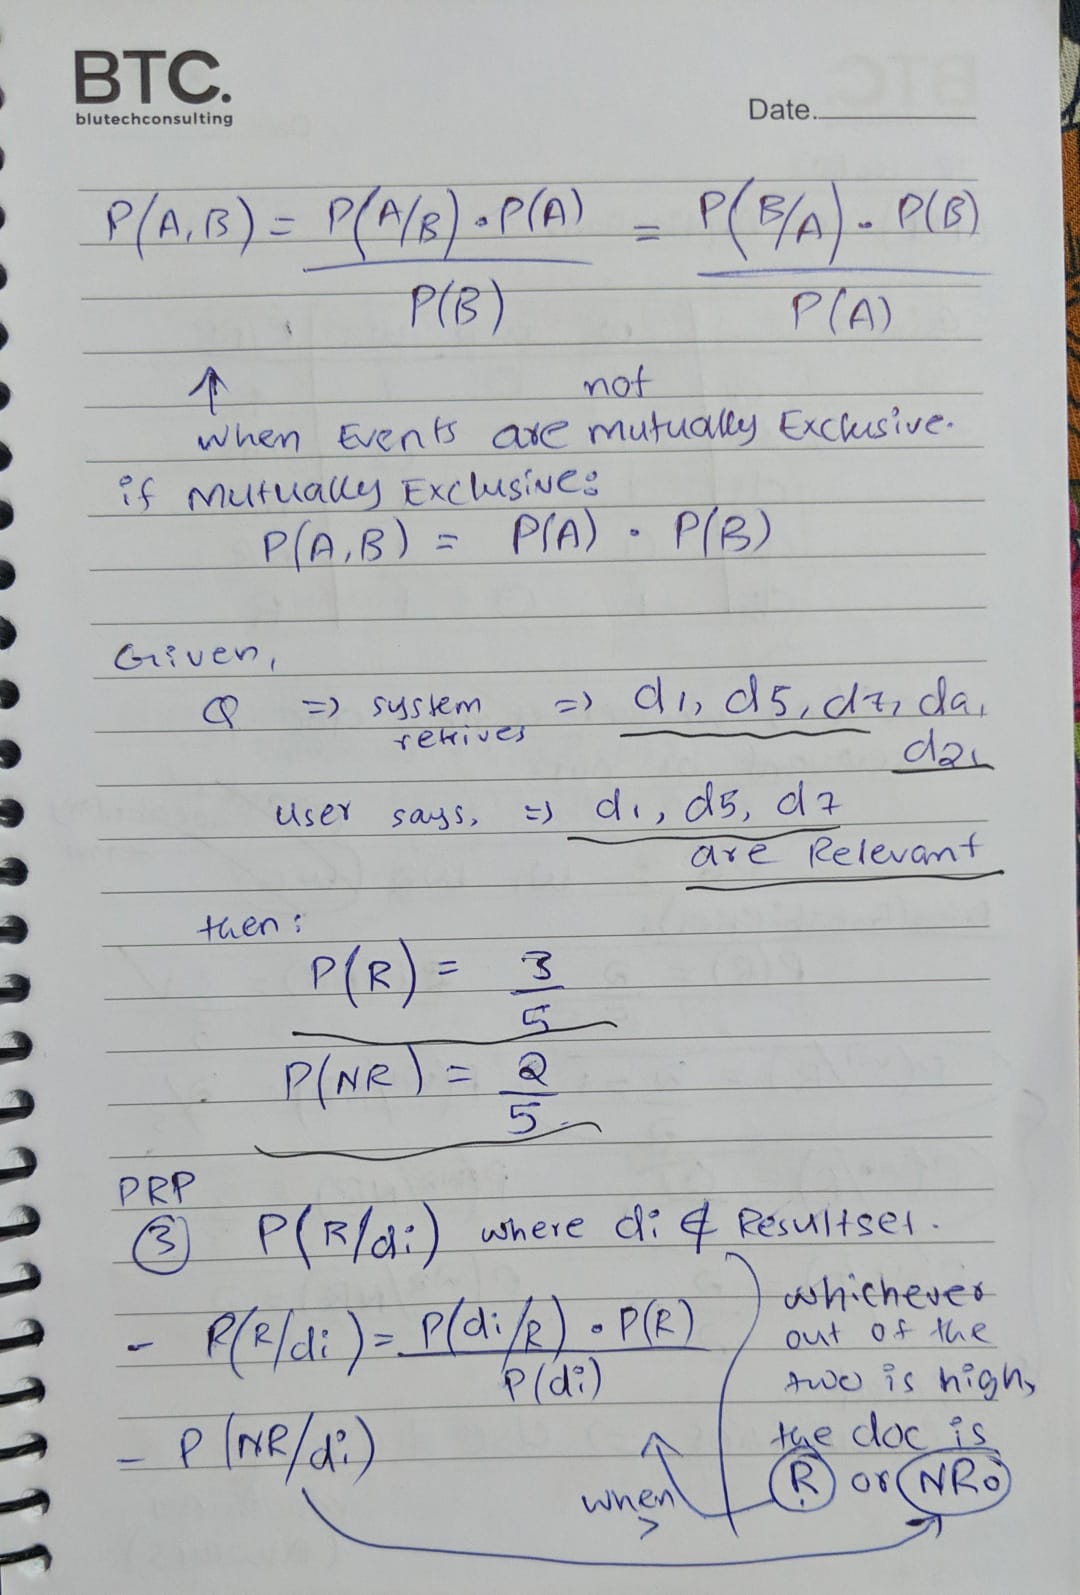 BTC.
blutechconsulting
Date.
P(A,B) = P(A/B) . P(A) / P(B) = P(B/A) . P(B) / P(A)
↑ not
when Events are mutually Exclusive.
if Mutually Exclusive:
P(A,B) = P(A) . P(B)
Given,
Q => system retrives => d1, d5, d7, da,
d21
user says, => d1, d5, d7
are Relevant
then:
P(R) = 3/5
P(NR) = 2/5
PRP
③ P(R/di) where di ∉ Resultset.
- P(R/di) = P(di/R) . P(R) / P(di)
- P(NR/di)
whichever
out of the
two is high,
the doc is
R or NR.
when
>